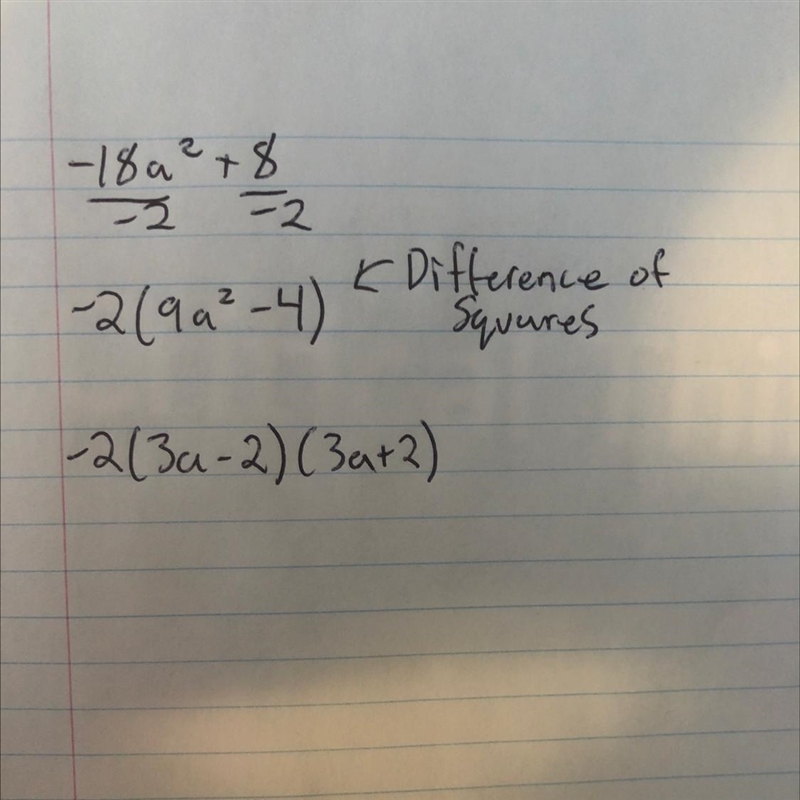 -18a² + 8
-2 -2
-2(9a² - 4) ← Difference of
Squares
-2(3a - 2)(3a+2)